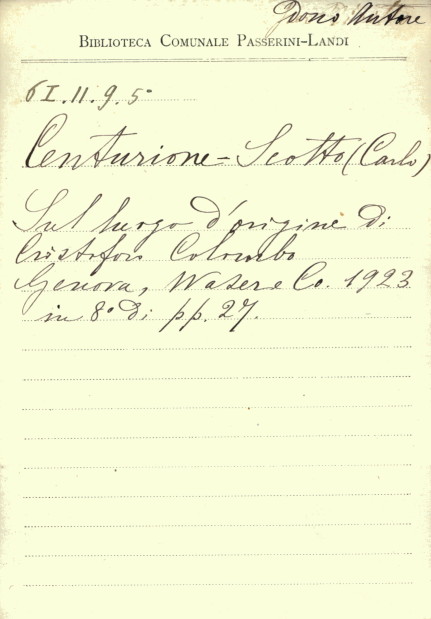 dono Autore
BIBLIOTECA COMUNALE PASSERINI-LANDI
6 I. 11. 9. 5°
Centurione - Scotto (Carlo)
Sul luogo d'origine di
Cristoforo Colombo
Genova, Waser e Co. 1923
in 8° di pp. 27.